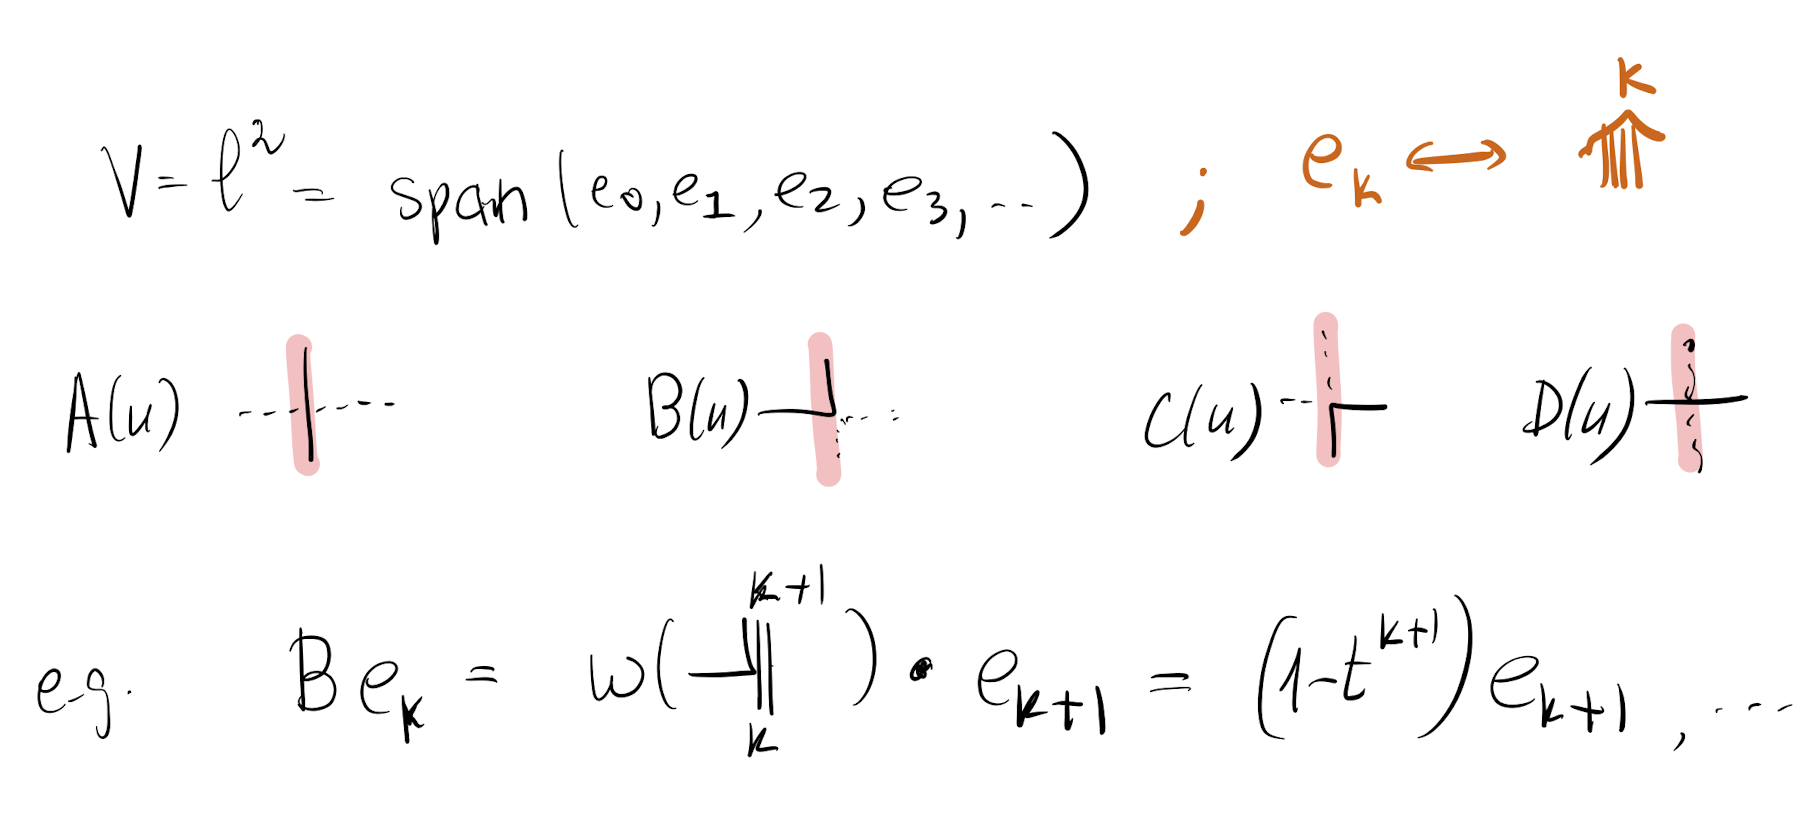 V = ℓ² = span(e₀, e₁, e₂, e₃, ...) ; eₖ ↔ k
A(u) B(u) C(u) D(u)
e.g. B eₖ = w( k+1 k ) • eₖ₊₁ = (1-t^{k+1}) eₖ₊₁ , ...